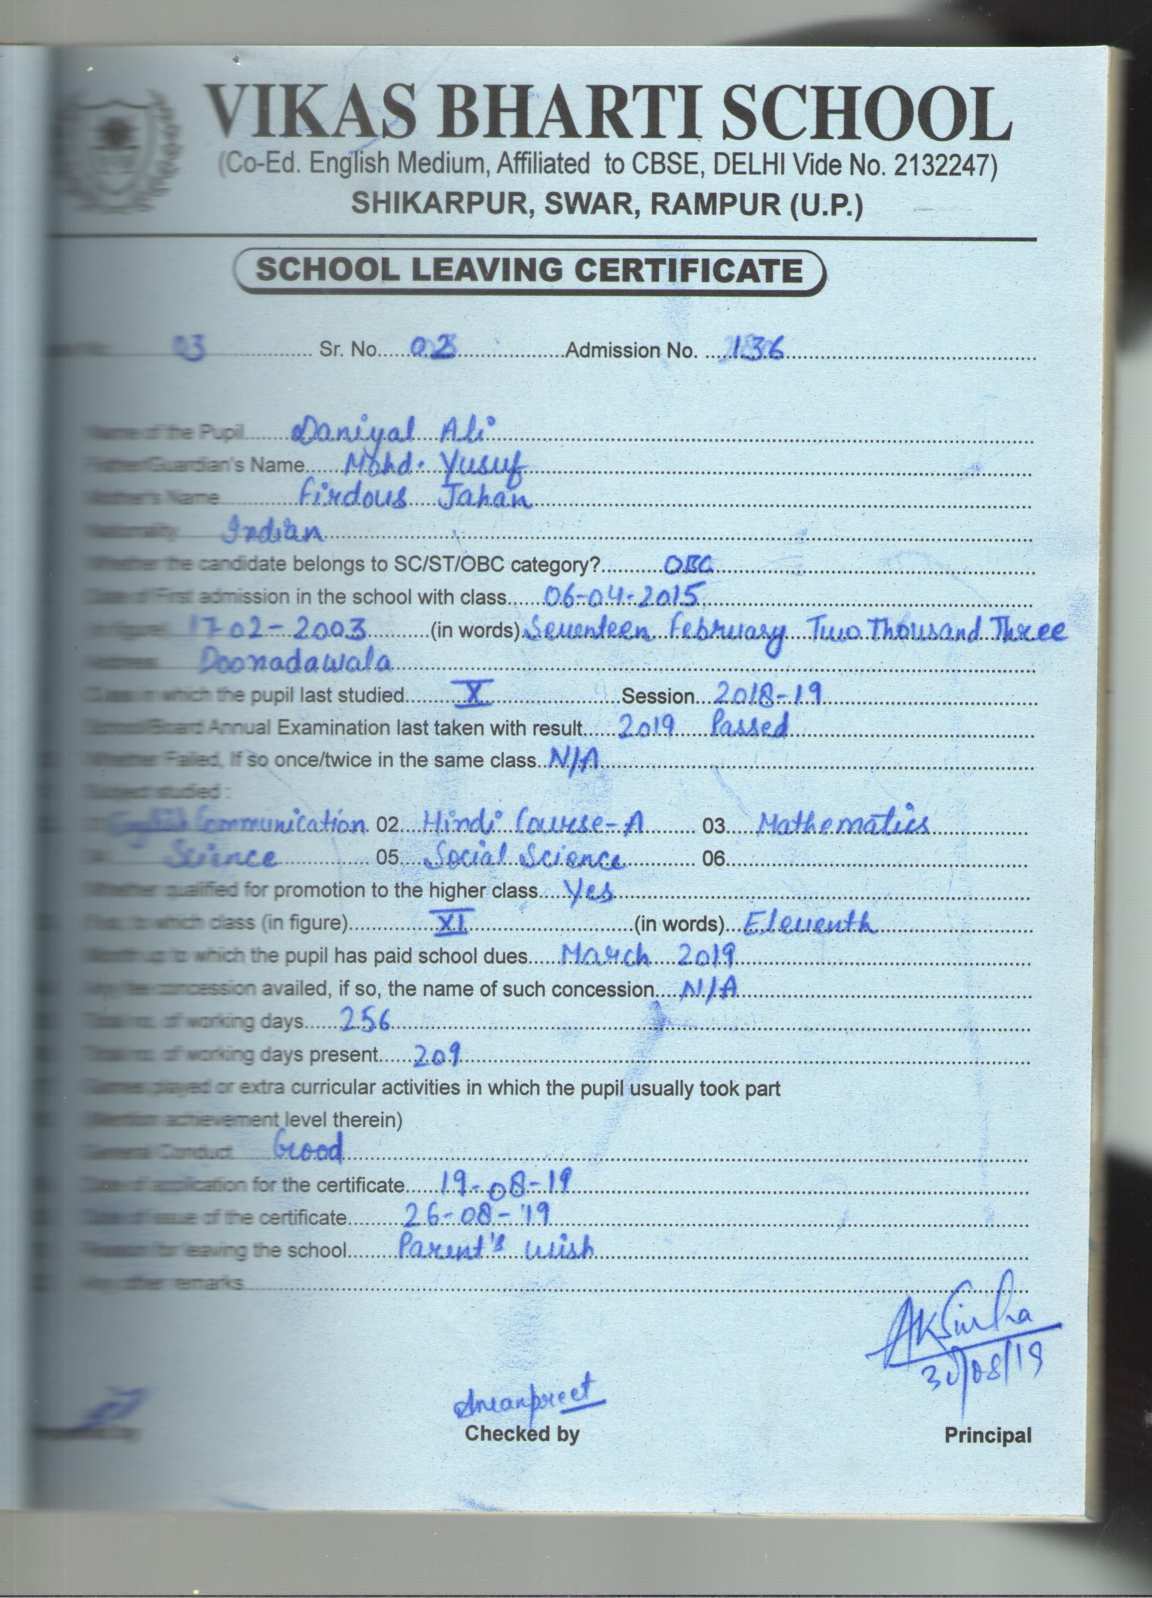 VIKAS BHARTI SCHOOL
(Co-Ed. English Medium, Affiliated to CBSE, DELHI Vide No. 2132247)
SHIKARPUR, SWAR, RAMPUR (U.P.)
SCHOOL LEAVING CERTIFICATE
03 Sr. No. 02 Admission No. 136
Name of the Pupil Daniyal Ali
Father/Guardian's Name Mohd. Yusuf
Mother's Name Firdous Jahan
Nationality Indian
Whether the candidate belongs to SC/ST/OBC category? OBC
Date of First admission in the school with class 06-04-2015
in figure 17-02-2003 (in words) Seventeen February Two Thousand Three
Address Doonadawala
Class in which the pupil last studied X Session 2018-19
School/Board Annual Examination last taken with result 2019 Passed
Whether Failed, If so once/twice in the same class N/A
Subject studied :
English Communication 02 Hindi Course-A 03. Mathematics
Science 05. Social Science 06.
Whether qualified for promotion to the higher class Yes
to which class (in figure) XI (in words) Eleventh
Month up to which the pupil has paid school dues March 2019
Any fee concession availed, if so, the name of such concession N/A
Total no. of working days 256
Total no. of working days present 209
Games played or extra curricular activities in which the pupil usually took part
(Mention achievement level therein)
General Conduct Good
Date of application for the certificate 19-08-19
Date of issue of the certificate 26-08-'19
Reason for leaving the school Parent's wish
Any other remarks
AKSinha
30/08/19
Checked by Principal